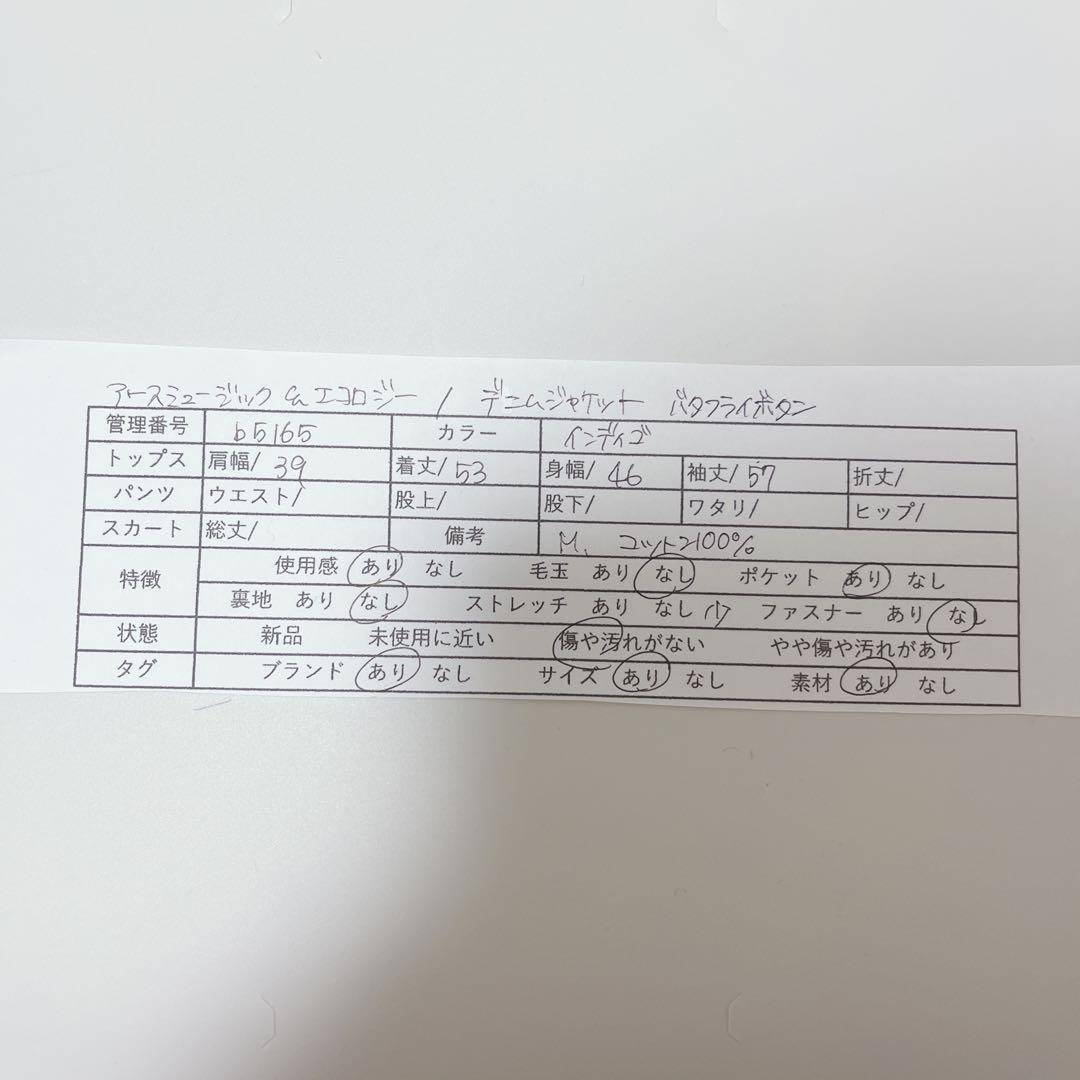 アースミュージック&エコロジー / デニムジャケット バタフライボタン
管理番号 b5165 カラー インディゴ
トップス 肩幅/ 39 着丈/ 53 身幅/ 46 袖丈/ 57 折丈/
パンツ ウエスト/ 股上/ 股下/ ワタリ/ ヒップ/
スカート 総丈/ 備考 M、コットン100%
特徴 使用感 あり なし 毛玉 あり なし ポケット あり なし
裏地 あり なし ストレッチ あり なし 小 ファスナー あり なし
状態 新品 未使用に近い 傷や汚れがない やや傷や汚れがあり
タグ ブランド あり なし サイズ あり なし 素材 あり なし